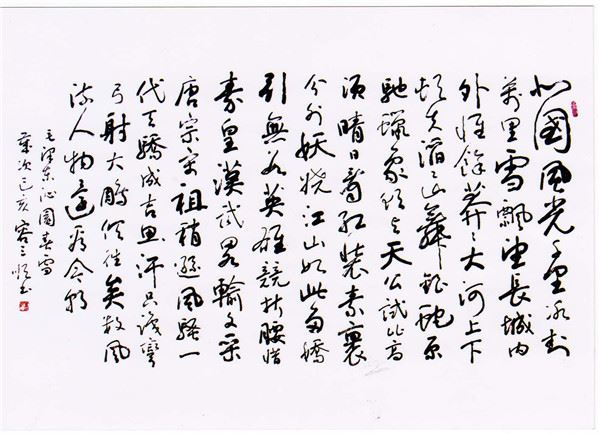 北國風光千里冰封
萬里雪飄望長城内
外惟餘莽々大河上下
頓失滔々山舞銀蛇原
馳蠟象欲与天公試比高
須晴日看红裝素裹
分外妖嬈江山如此多嬌
引無數英雄競折腰惜
秦皇漢武畧輸文采
唐宗宋祖稍遜風騷一
代天驕成吉思汗只識彎
弓射大鵰俱往矣數風
流人物還看今朝
毛澤東沁園春雪
歲次己亥